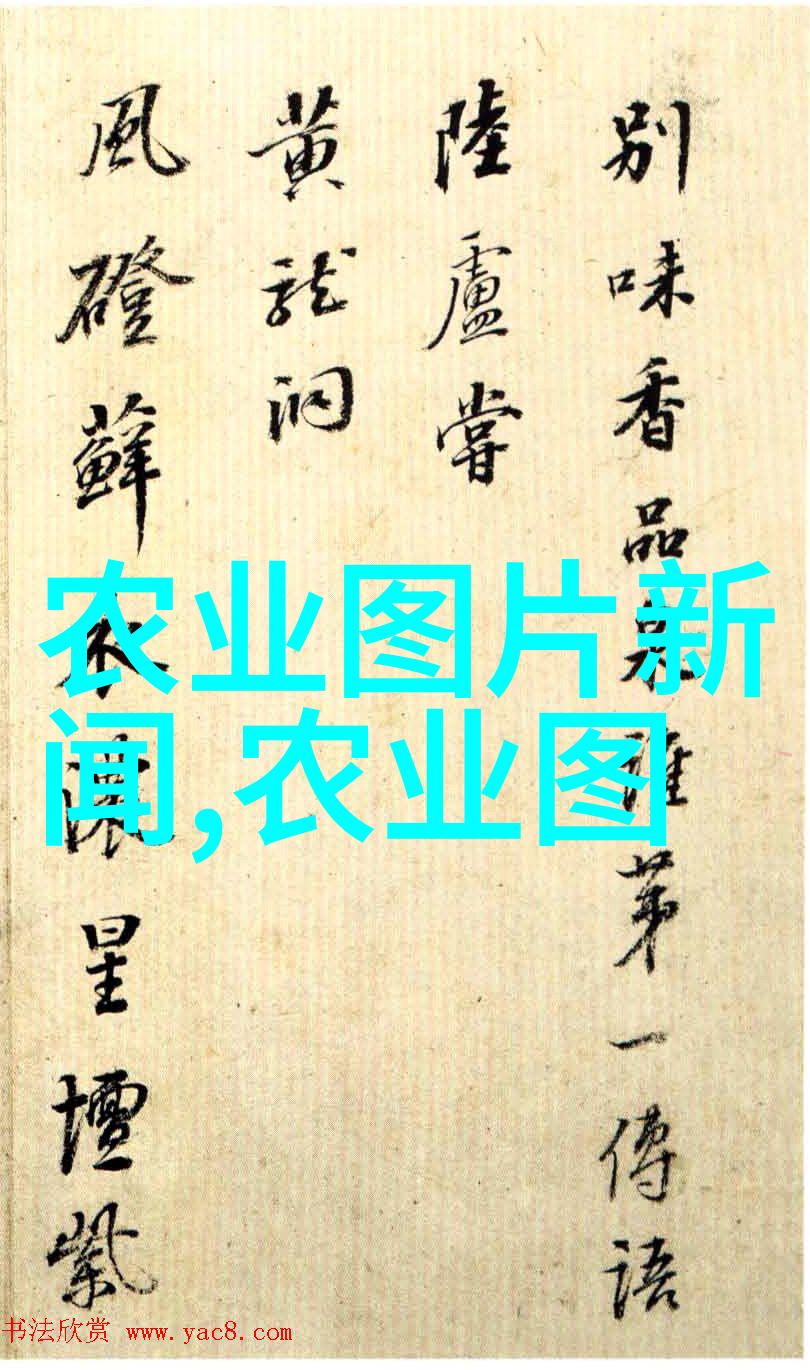 別味香品泉誰第一傳語
陸盧嘗
黄龍洞
風磴蘚衣濃星壇紫
农业图片新
闻,农业图
书法欣赏 www.yac8.com